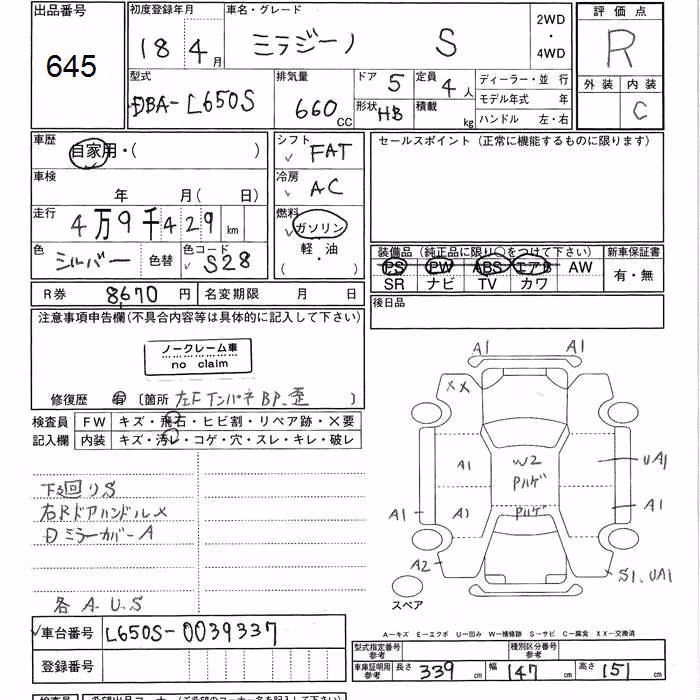 出品番号
645
初度登録年月
18 4月
車名・グレード
ミラジーノ S
2WD
・
4WD
評価点
R
外装 内装
C
型式
DBA-L650S
排気量
660 CC
ドア 5
形状 HB
定員 4人
積載 kg
ディーラー・並行
モデル年式 年
ハンドル 左・右
車歴
自家用・( )
車検
年 月( 日)
走行 4万9千429 km
色 シルバー 色替
色コード S28
シフト FAT
冷房 AC
燃料
ガソリン
軽・油
( )
セールスポイント(正常に機能するものに限ります)
装備品(純正品に限り○をつけて下さい)
PS PW ABS エアB AW
SR ナビ TV カワ
新車保証書
有・無
後日品
R券 8670円 名変期限 月 日
注意事項申告欄(不具合内容等は具体的に記入して下さい)
ノークレーム車
no claim
修復歴 有 〔箇所 左Fインパネ BP.歪 〕
検査員 FW キズ・飛石・ヒビ割・リペア跡・×要
記入欄 内装 キズ・汚レ・コゲ・穴・スレ・キレ・破レ
下廻りS
右RドアハンドルX
Dミラーカバー A
各 A.U.S
A1 A1
XX
A1
W2
Pハゲ
UA1
A1 A1 Pハゲ A1
A2
S1.UA1
スペア
車台番号 L650S-0039337
登録番号
A−キズ E−エクボ U−凹み W−補修跡 S−サビ C−腐食 XX−交換済
型式指定番号
参考
種別区分番号
参考
車庫証明用
参考
長さ 339 cm 幅 147 cm 高さ 151 cm